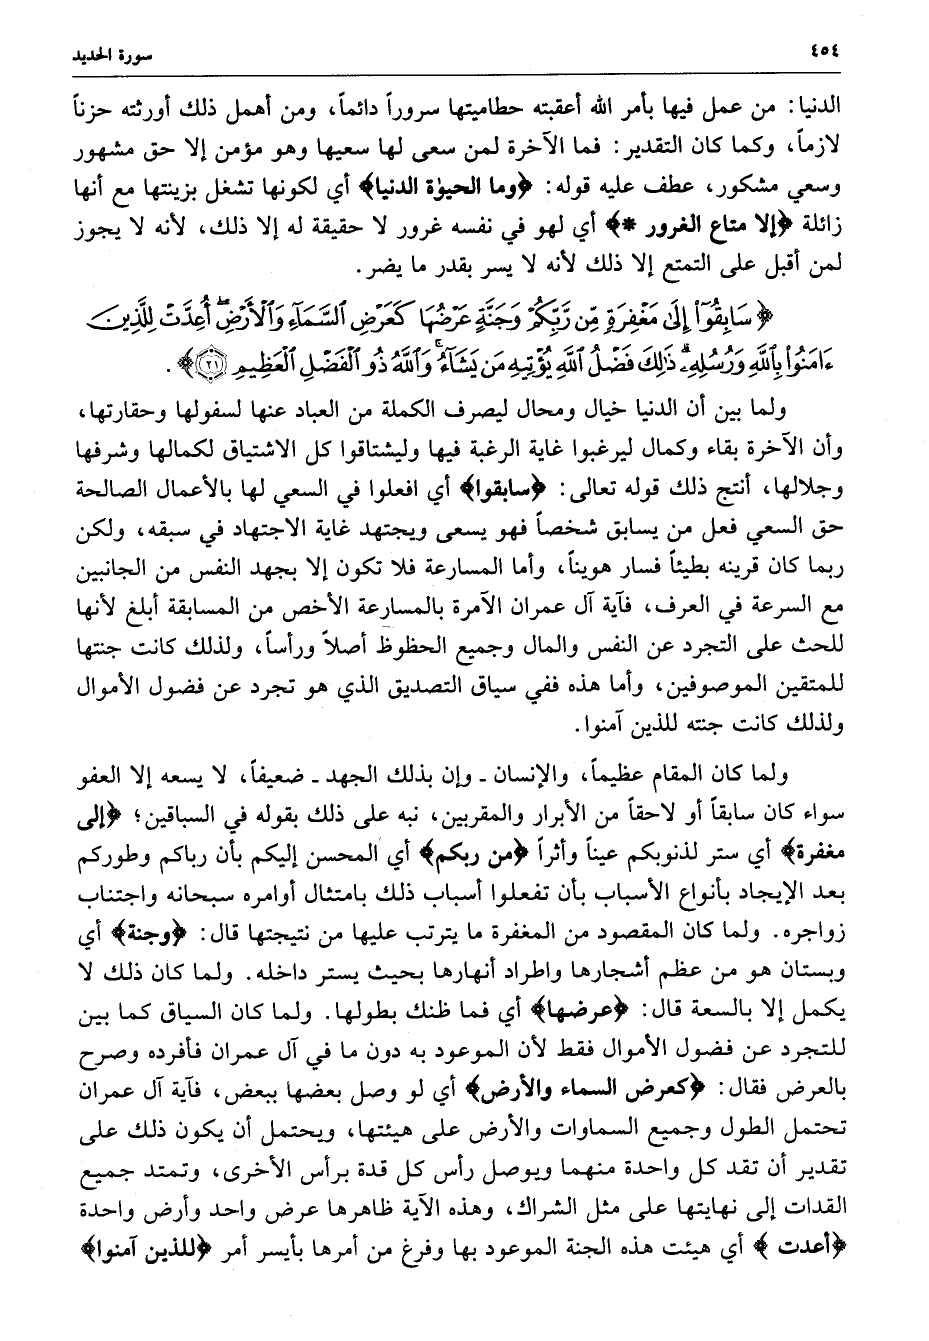 ٤٥٤ سورة الحديد
الدنيا: من عمل فيها بأمر الله أعقبته حطاميتها سروراً دائماً، ومن أهمل ذلك أورثته حزناً
لازماً، وكما كان التقدير: فما الآخرة لمن سعى لها سعيها وهو مؤمن إلا حق مشهور
وسعي مشكور، عطف عليه قوله: ﴿وما الحيوٰة الدنيا﴾ أي لكونها تشغل بزينتها مع أنها
زائلة ﴿إلا متاع الغرور *﴾ أي لهو في نفسه غرور لا حقيقة له إلا ذلك، لأنه لا يجوز
لمن أقبل على التمتع إلا ذلك لأنه لا يسر بقدر ما يضر.
﴿سَابِقُوٓا۟ إِلَىٰ مَغْفِرَةٍ مِّن رَّبِّكُمْ وَجَنَّةٍ عَرْضُهَا كَعَرْضِ ٱلسَّمَآءِ وَٱلْأَرْضِ أُعِدَّتْ لِلَّذِينَ
ءَامَنُوا۟ بِٱللَّهِ وَرُسُلِهِۦ ۚ ذَٰلِكَ فَضْلُ ٱللَّهِ يُؤْتِيهِ مَن يَشَآءُ ۚ وَٱللَّهُ ذُو ٱلْفَضْلِ ٱلْعَظِيمِ ٢١﴾.
ولما بين أن الدنيا خيال ومحال ليصرف الكملة من العباد عنها لسفولها وحقارتها،
وأن الآخرة بقاء وكمال ليرغبوا غاية الرغبة فيها وليشتاقوا كل الاشتياق لكمالها وشرفها
وجلالها، أنتج ذلك قوله تعالى: ﴿سابقوا﴾ أي افعلوا في السعي لها بالأعمال الصالحة
حق السعي فعل من يسابق شخصاً فهو يسعى ويجتهد غاية الاجتهاد في سبقه، ولكن
ربما كان قرينه بطيئاً فسار هويناً، وأما المسارعة فلا تكون إلا بجهد النفس من الجانبين
مع السرعة في العرف، فآية آل عمران الآمرة بالمسارعة الأخص من المسابقة أبلغ لأنها
للحث على التجرد عن النفس والمال وجميع الحظوظ أصلاً ورأساً، ولذلك كانت جنتها
للمتقين الموصوفين، وأما هذه ففي سياق التصديق الذي هو تجرد عن فضول الأموال
ولذلك كانت جنته للذين آمنوا.
ولما كان المقام عظيماً، والإنسان ـ وإن بذلك الجهد ـ ضعيفاً، لا يسعه إلا العفو
سواء كان سابقاً أو لاحقاً من الأبرار والمقربين، نبه على ذلك بقوله في السباقين؛ ﴿إلى
مغفرة﴾ أي ستر لذنوبكم عيناً وأثراً ﴿من ربكم﴾ أي المحسن إليكم بأن رباكم وطوركم
بعد الإيجاد بأنواع الأسباب بأن تفعلوا أسباب ذلك بامتثال أوامره سبحانه واجتناب
زواجره. ولما كان المقصود من المغفرة ما يترتب عليها من نتيجتها قال: ﴿وجنة﴾ أي
وبستان هو من عظم أشجارها واطراد أنهارها بحيث يستر داخله. ولما كان ذلك لا
يكمل إلا بالسعة قال: ﴿عرضها﴾ أي فما ظنك بطولها. ولما كان السياق كما بين
للتجرد عن فضول الأموال فقط لأن الموعود به دون ما في آل عمران فأفرده وصرح
بالعرض فقال: ﴿كعرض السماء والأرض﴾ أي لو وصل بعضها ببعض، فآية آل عمران
تحتمل الطول وجميع السماوات والأرض على هيئتها، ويحتمل أن يكون ذلك على
تقدير أن تقد كل واحدة منهما ويوصل رأس كل قدة برأس الأخرى، وتمتد جميع
القدات إلى نهايتها على مثل الشراك، وهذه الآية ظاهرها عرض واحد وأرض واحدة
﴿أعدت ﴾ أي هيئت هذه الجنة الموعود بها وفرغ من أمرها بأيسر أمر ﴿للذين آمنوا﴾